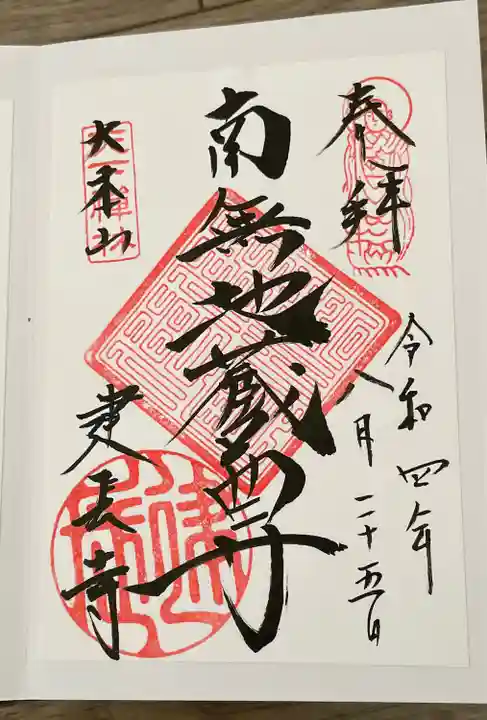 奉拝
令和四年
八月二十五日
南無地蔵尊
大本山
建長寺